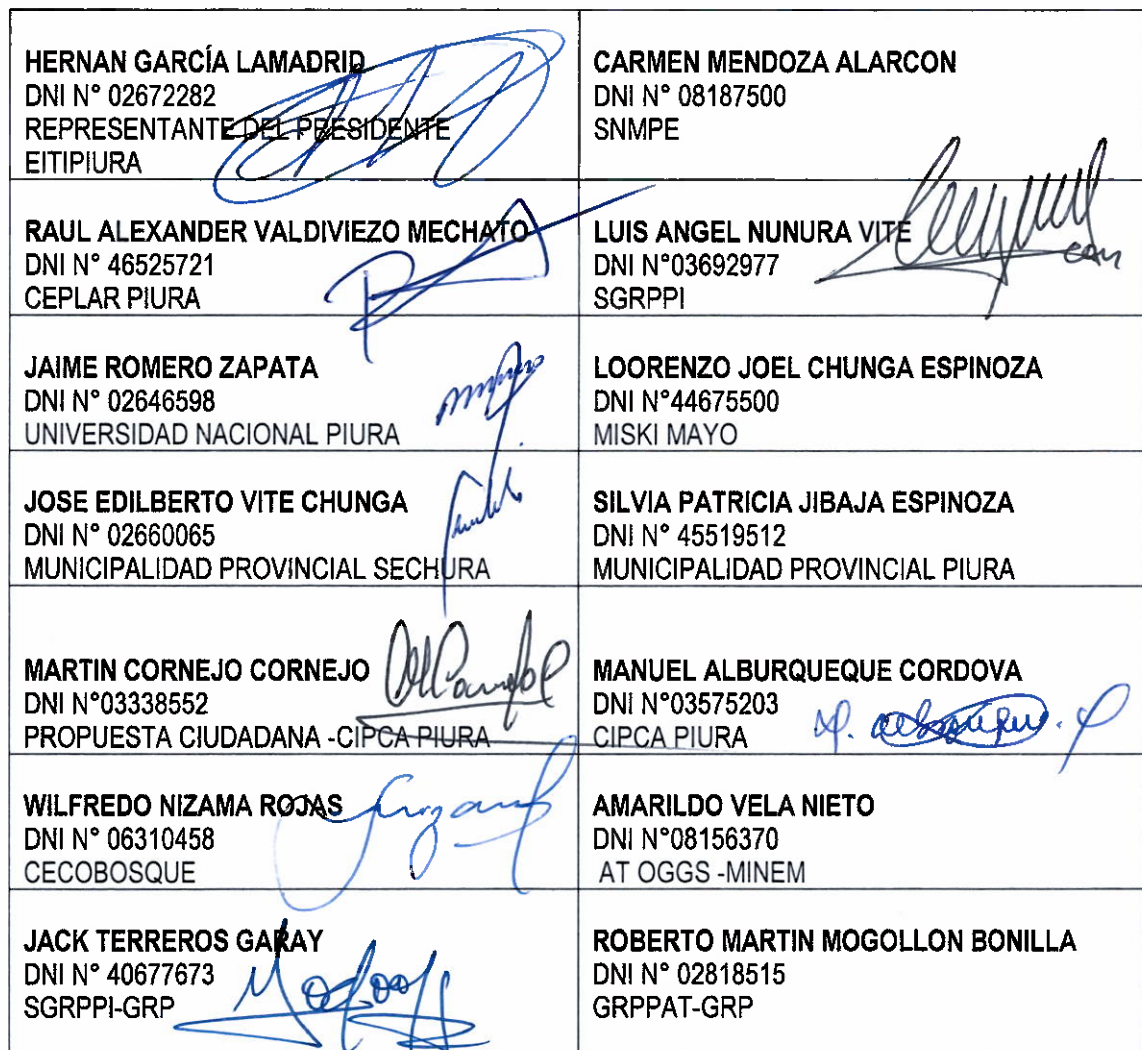 HERNAN GARCÍA LAMADRID
DNI N° 02672282
REPRESENTANTE DEL PRESIDENTE
EITIPIURA
CARMEN MENDOZA ALARCON
DNI N° 08187500
SNMPE
RAUL ALEXANDER VALDIVIEZO MECHATO
DNI N° 46525721
CEPLAR PIURA
LUIS ANGEL NUNURA VITE
DNI N°03692977
SGRPPI
JAIME ROMERO ZAPATA
DNI N° 02646598
UNIVERSIDAD NACIONAL PIURA
LOORENZO JOEL CHUNGA ESPINOZA
DNI N°44675500
MISKI MAYO
JOSE EDILBERTO VITE CHUNGA
DNI N° 02660065
MUNICIPALIDAD PROVINCIAL SECHURA
SILVIA PATRICIA JIBAJA ESPINOZA
DNI N° 45519512
MUNICIPALIDAD PROVINCIAL PIURA
MARTIN CORNEJO CORNEJO
DNI N°03338552
PROPUESTA CIUDADANA -CIPCA PIURA
MANUEL ALBURQUEQUE CORDOVA
DNI N°03575203
CIPCA PIURA
WILFREDO NIZAMA ROJAS
DNI N° 06310458
CECOBOSQUE
AMARILDO VELA NIETO
DNI N°08156370
AT OGGS -MINEM
JACK TERREROS GARAY
DNI N° 40677673
SGRPPI-GRP
ROBERTO MARTIN MOGOLLON BONILLA
DNI N° 02818515
GRPPAT-GRP